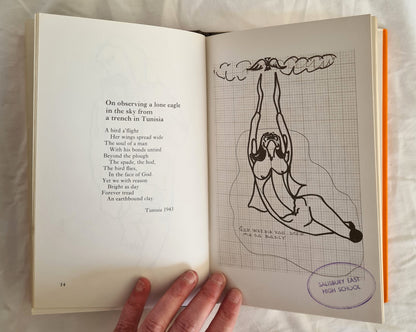 On observing a lone eagle
in the sky from
a trench in Tunisia
A bird a'flight
Her wings spread wide
The soul of a man
With his bonds untied
Beyond the plough
The spade, the hod,
The bird flies,
In the face of God.
Yet we with reason
Bright as day
Forever tread
An earthbound clay
Tunisia 1943
74
SALISBURY EAST
HIGH SCHOOL